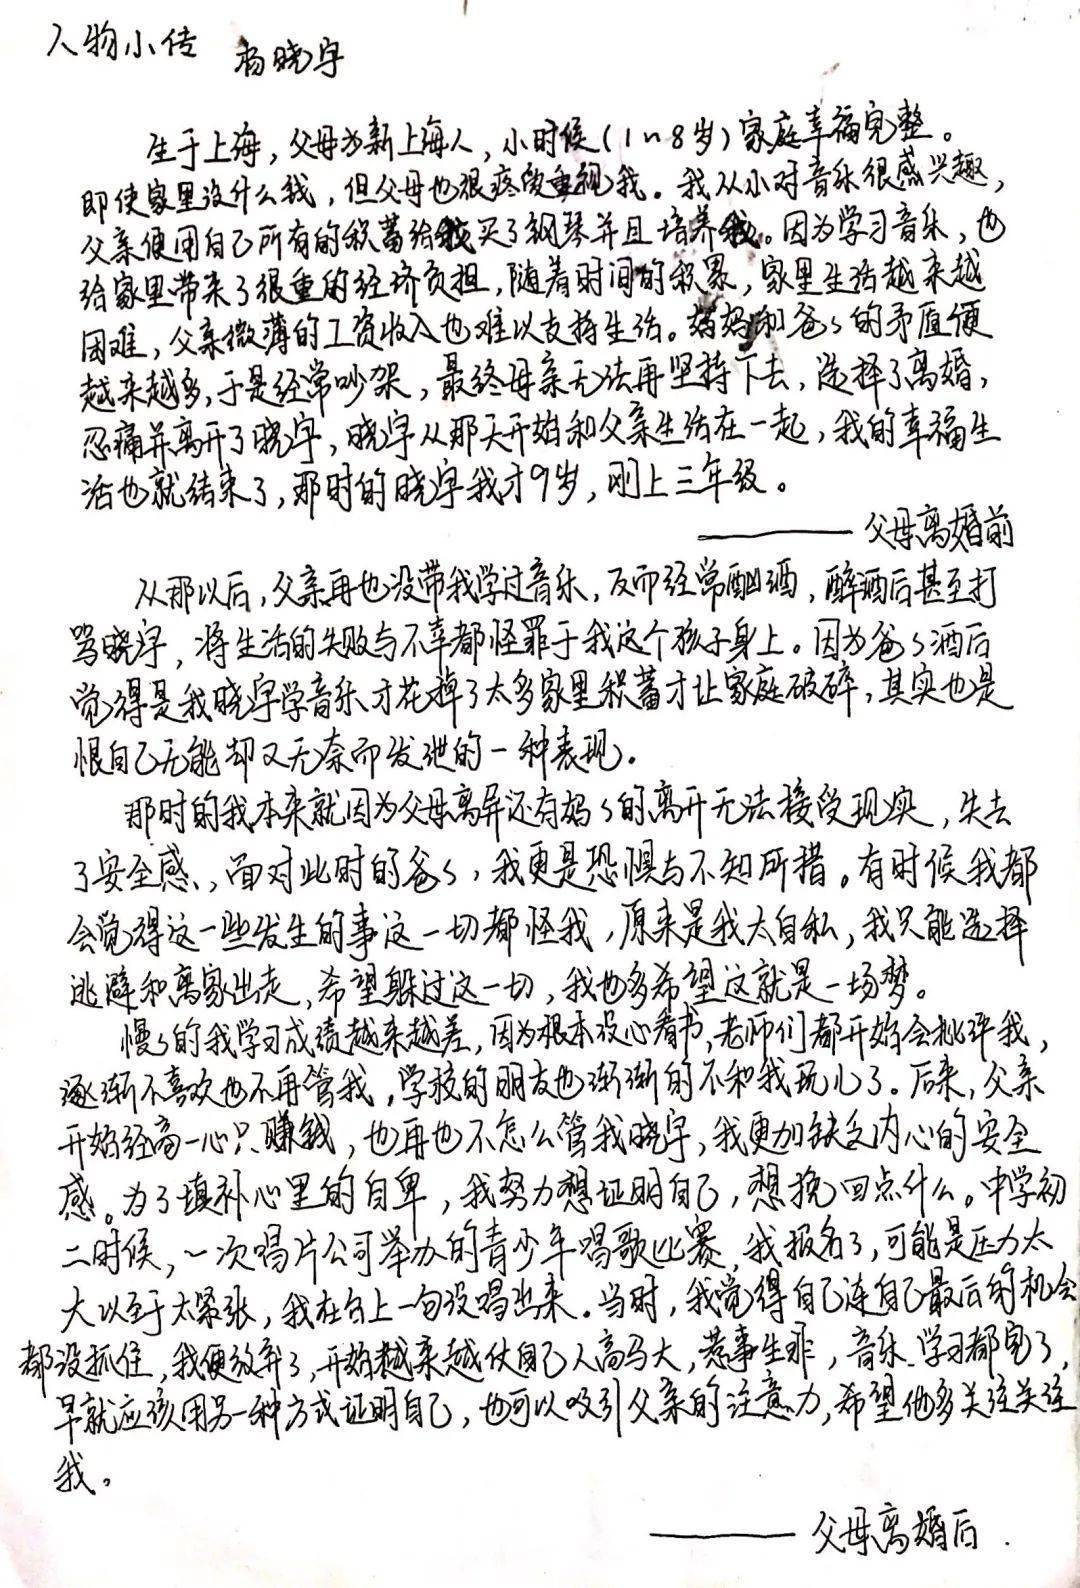 人物小传 杨晓宇
生于上海，父母为新上海人，小时候（1~8岁）家庭幸福完整。
即使家里没什么钱，但父母也很疼爱重视我。我从小对音乐很感兴趣，
父亲便用自己所有的积蓄给我买了钢琴并且培养我。因为学习音乐，也
给家里带来了很重的经济负担，随着时间的积累，家里生活越来越
困难，父亲微薄的工资收入也难以支持生活。妈妈和爸爸的矛盾便
越来越多，于是经常吵架，最终母亲无法再坚持下去，选择了离婚，
忍痛并离开了晓宇，晓宇从那天开始和父亲生活在一起，我的幸福生
活也就结束了，那时的晓宇我才9岁，刚上三年级。
——父母离婚前
从那以后，父亲再也没带我学过音乐，反而经常酗酒，醉酒后甚至打
骂晓宇，将生活的失败与不幸都怪罪于我这个孩子身上。因为爸爸酒后
觉得是我晓宇学音乐才花掉了太多家里积蓄才让家庭破碎，其实也是
恨自己无能却又无奈而发泄的一种表现。
那时的我本来就因为父母离异还有妈妈的离开无法接受现实，失去
了安全感、，面对此时的爸爸，我更是恐惧与不知所措。有时候我都
会觉得这一些发生的事这一切都怪我，原来是我太自私，我只能选择
逃避和离家出走，希望躲过这一切，我也多希望这就是一场梦。
慢慢的我学习成绩越来越差，因为根本没心看书，老师们都开始会批评我，
逐渐不喜欢也不再管我，学校的朋友也渐渐的不和我玩儿了。后来，父亲
开始经商一心只赚钱，也再也不怎么管我晓宇，我更加缺乏内心的安全
感。为了填补心里的自卑，我努力想证明自己，想挽回点什么。中学初
二时候，一次唱片公司举办的青少年唱歌比赛，我报名了，可能是压力太
大以至于太紧张，我在台上一句没唱出来。当时，我觉得自己连自己最后的机会
都没抓住，我便放弃了，开始越来越仗自己人高马大，惹事生非，音乐、学习都完了，
早就应该用另一种方式证明自己，也可以吸引父亲的注意力，希望他多关注关注
我。
——父母离婚后.